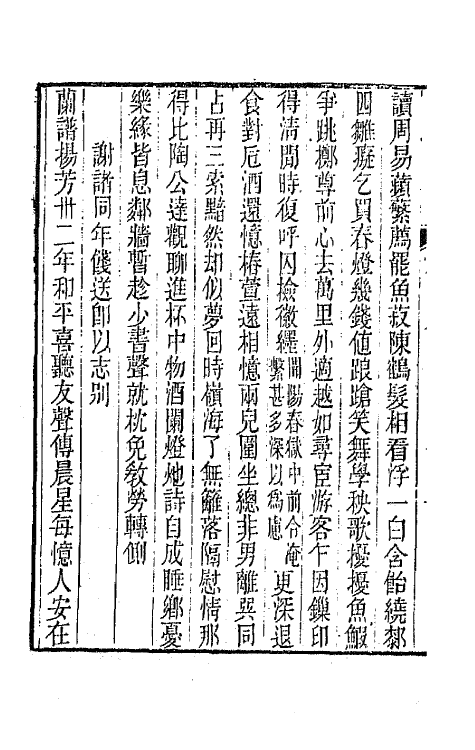 讀周易蘋蘩薦罷魚菽陳鶴髮相看浮一白含飴繞膝
四雛癡乞買春燈幾錢値踉蹌笑舞學秧歌擾擾魚鰕
爭跳擲尊前心去萬里外適越如尋宦游客乍因鏁印
得淸閒時復呼囚撿徽纆開陽春獄中前令淹繫甚多深以爲慮更深退
食對卮酒還憶椿萱遠相憶兩兒圍坐總非男離巽同
占再三索黯然却似夢回時嶺海了無籬落隔慰情那
得比陶公達觀聊進杯中物酒闌燈灺詩自成睡鄉憂
樂緣皆息鄰牆暫趁少書聲就枕免敎勞轉側
謝諸同年餞送卽以志別
蘭譜揚芳卅二年和平喜聽友聲傳晨星每憶人安在